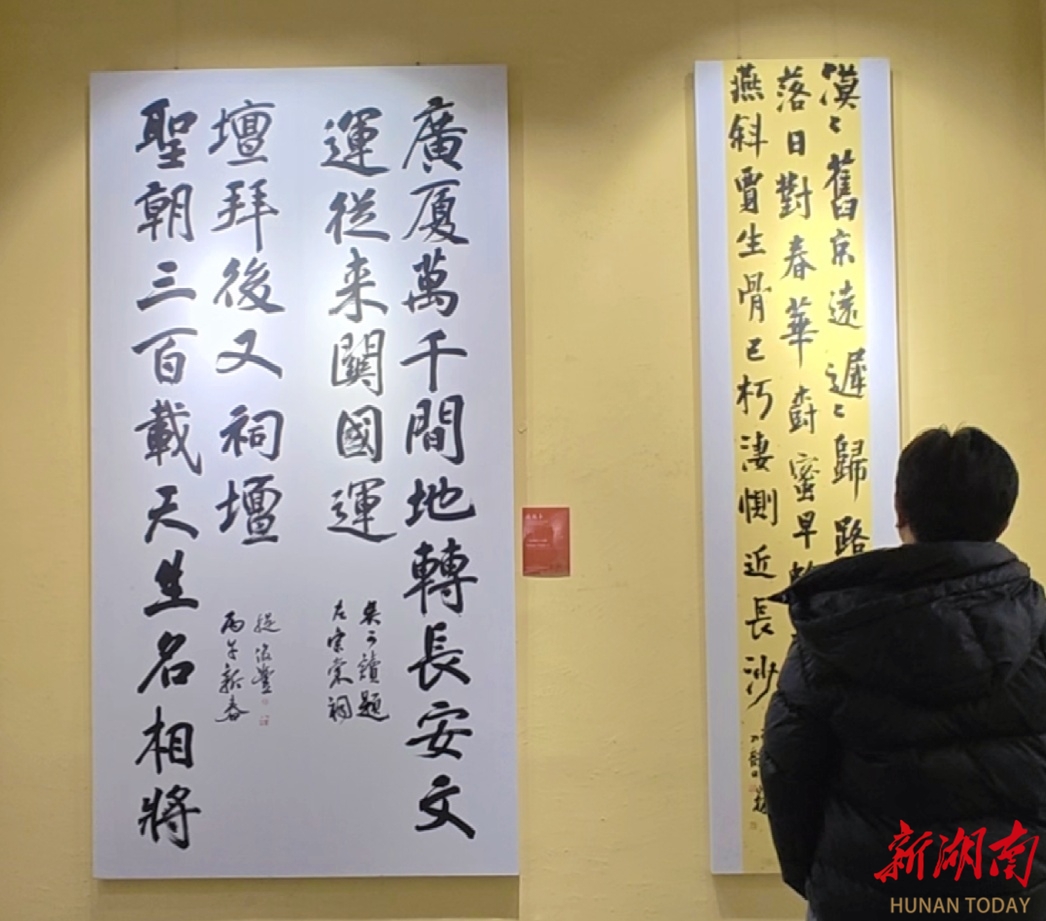 廣厦萬千間地轉長安文
運從来關國運
吴可讀題
左宗棠祠
聖朝三百載天生名相將
壇拜後又祠壇
丙午新春
漠々舊京遠遲々歸路
落日對春華樹蜜早
燕斜賈生骨已朽凄惻近長沙
新湖南
HUNAN TODAY